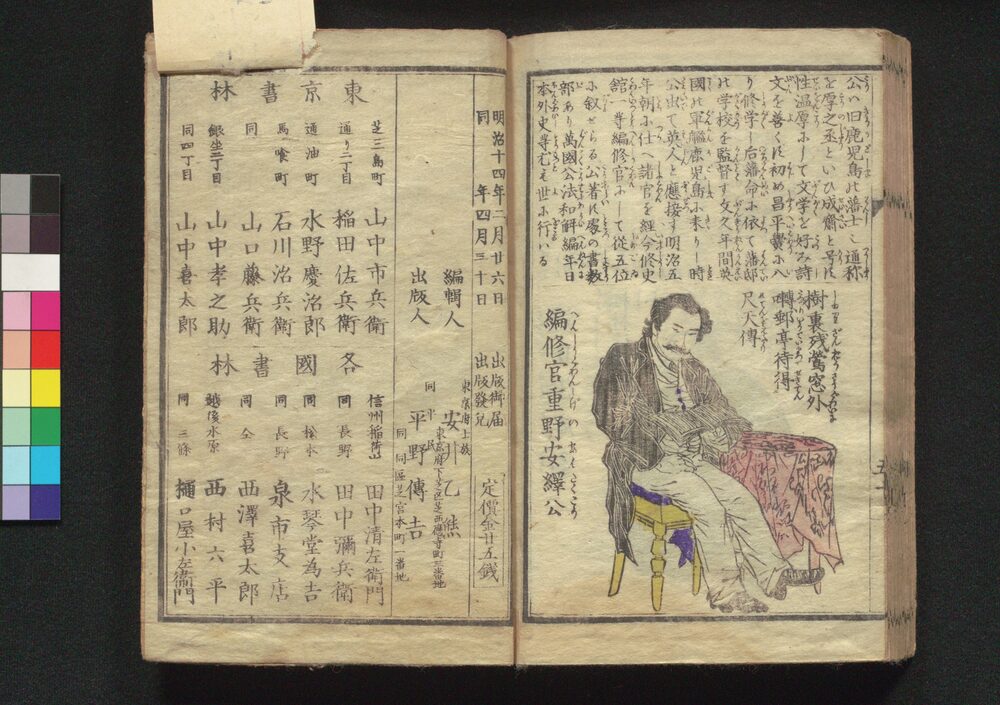 公ハ旧鹿児島の藩士ニ通称
を厚之丞といひ成齋と号に
性温厚にして文学を好み詩
文を善くす初め昌平黌に入
り修学し后藩命に依て藩邸
の学校を監督す文久年間英
國の軍艦鹿児島に来りし時
公出て英人と應接す明治五
年朝に仕へ諸官を経今修史
舘一等編修官にして從五位
に叙せらる公著に處の書数
部あり萬國公法和解編年日
本外史等尤も世に行ハる
樹裏残鶯窓外
囀郵亭待得
尺天傳
編修官重野安繹公
明治十四年二月廿六日 出版御届
同 年四月三十日 出版發兌
定價金廿五銭
東京府士族
編輯人 安川乙熊
東京府下芝区芝西應寺町三番地
同 平民
出版人 平野傳吉
同 同區芝宮本町一番地
東京書林
芝三島町 山中市兵衛
通り二丁目 稲田佐兵衛
通油町 水野慶治郎
馬喰町 石川治兵衛
同 山口藤兵衛
銀坐二丁目 山中孝之助
同四丁目 山中喜太郎
各國書林
信州稲荷山 田中清左衛門
同 長野 田中彌兵衛
同 松本 水琴堂為吉
同 長野 泉市支店
同 仝 西澤喜太郎
越後水原 西村六平
同 三條 樋口屋小左衛門